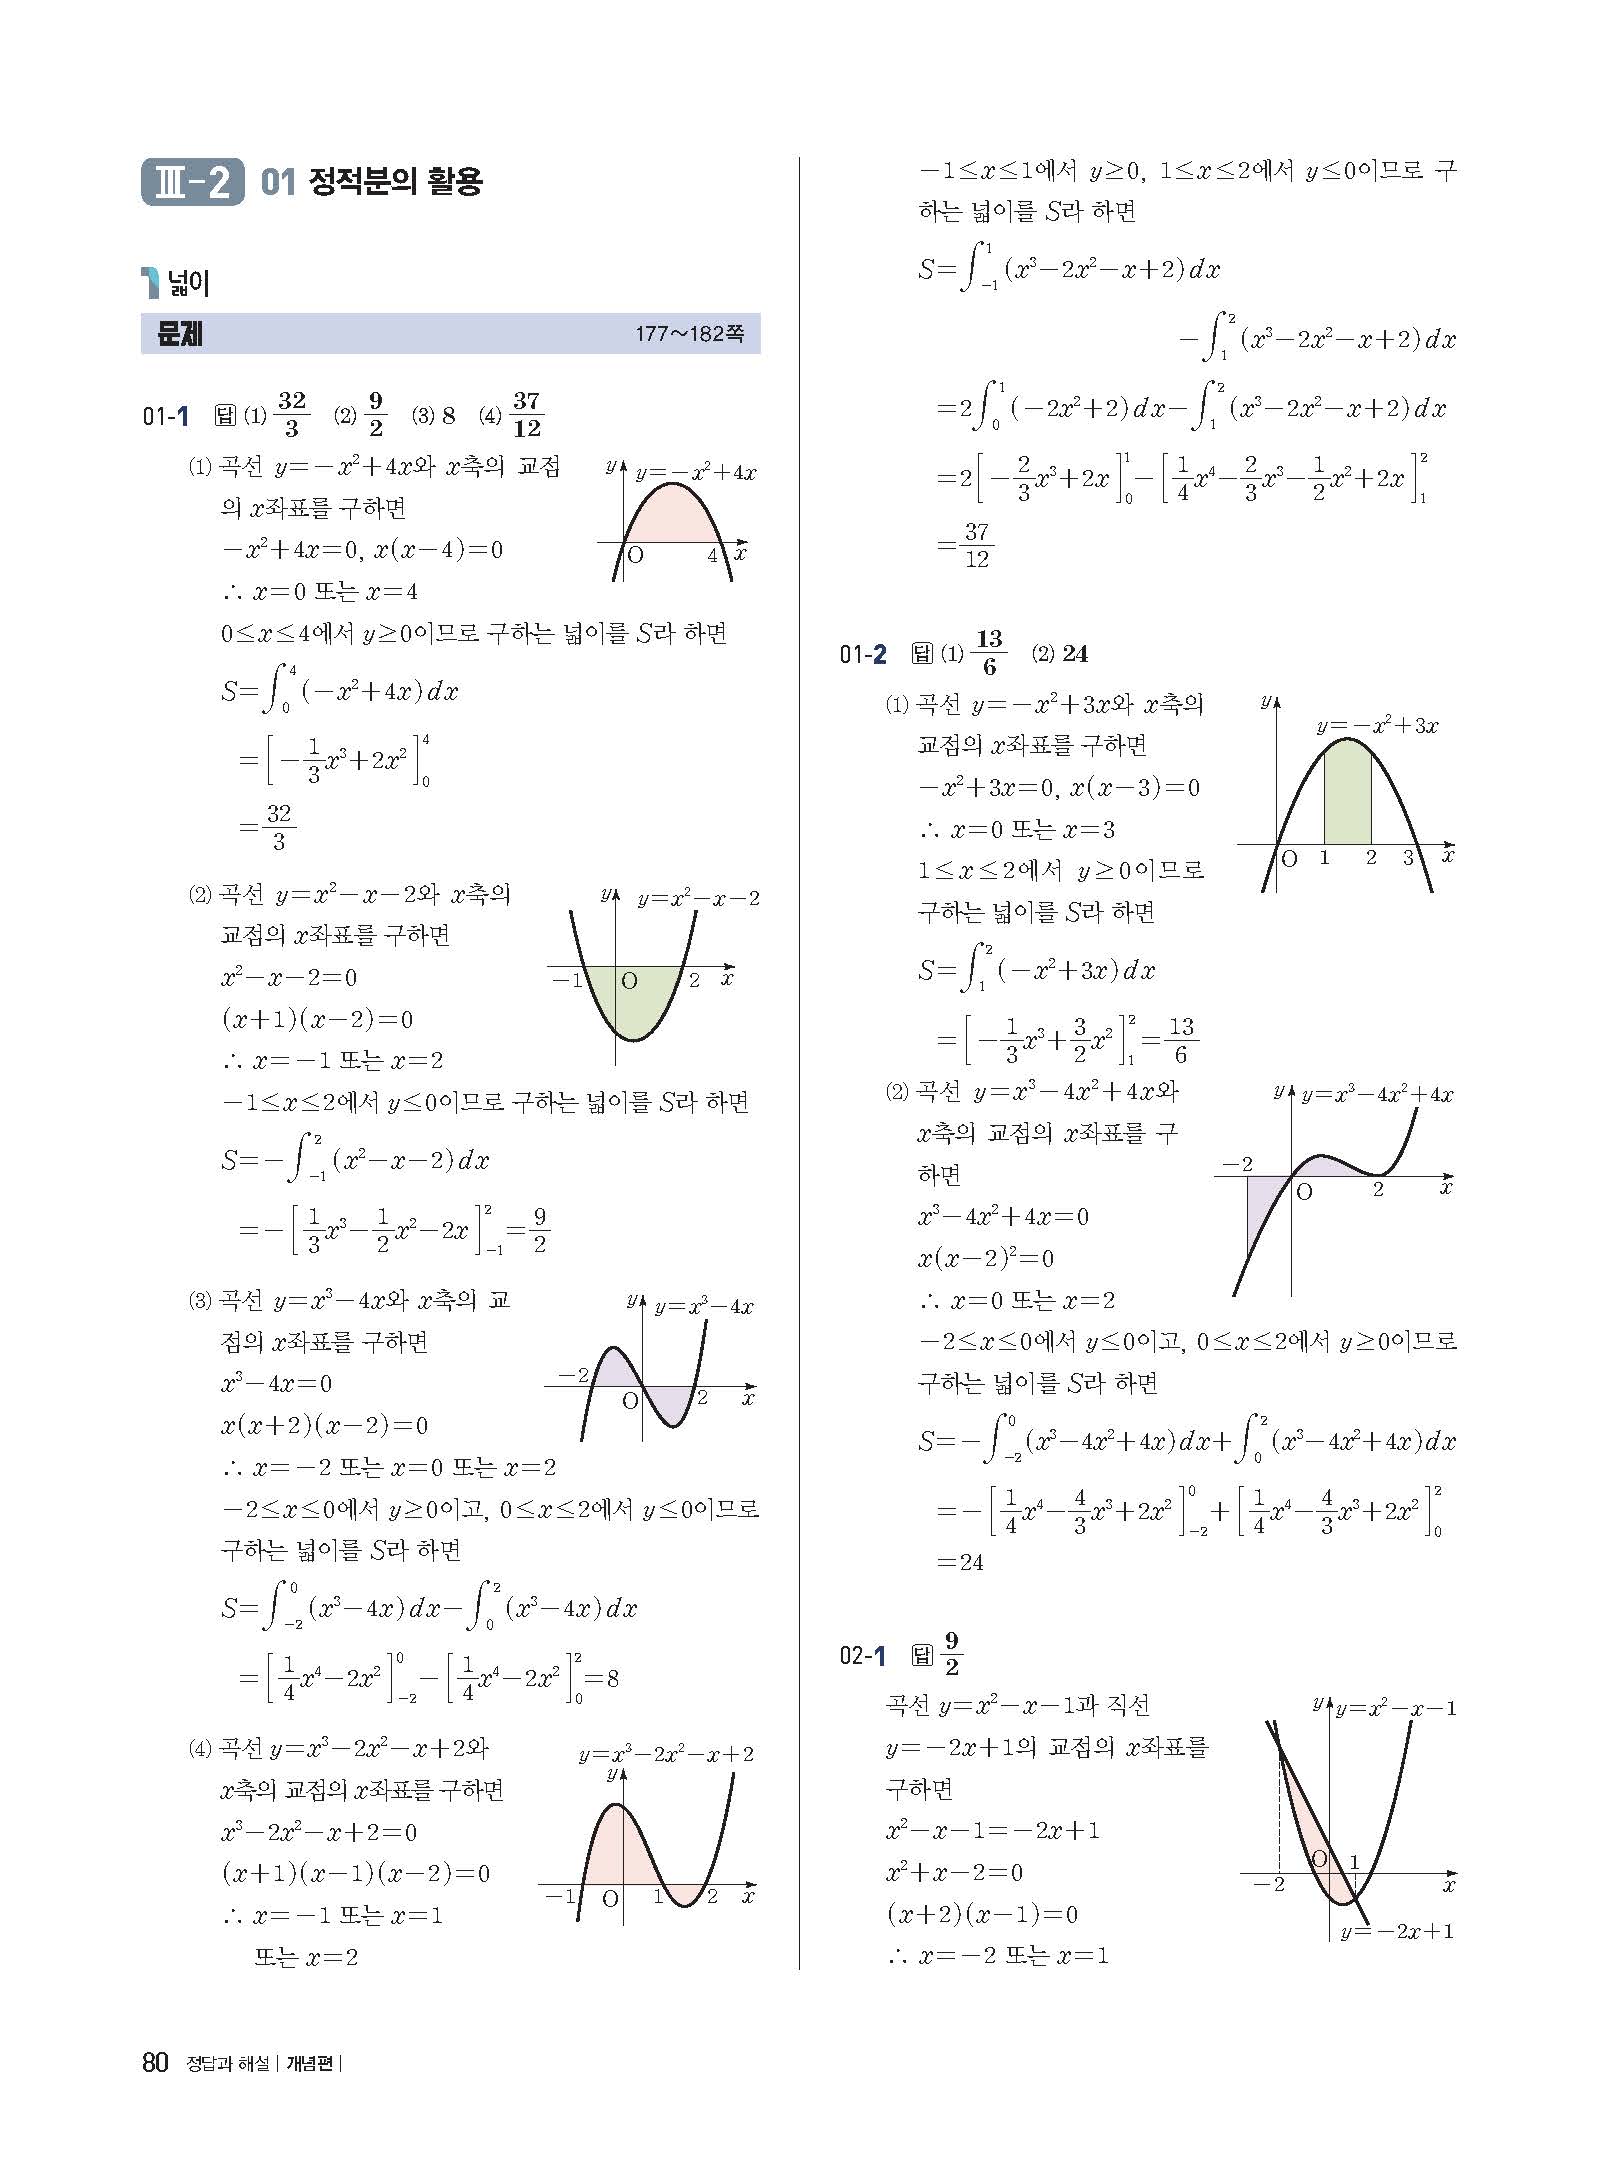 Ⅲ-2 01 정적분의 활용
1 넓이
문제 177~182쪽
01-1 답 (1) 32/3 (2) 9/2 (3) 8 (4) 37/12
(1) 곡선 y=-x²+4x와 x축의 교점
의 x좌표를 구하면
-x²+4x=0, x(x-4)=0
∴ x=0 또는 x=4
y y=-x²+4x
O 4 x
0≤x≤4에서 y≥0이므로 구하는 넓이를 S라 하면
S=∫₀⁴(-x²+4x)dx
=[-1/3x³+2x²]₀⁴
=32/3
(2) 곡선 y=x²-x-2와 x축의
교점의 x좌표를 구하면
x²-x-2=0
(x+1)(x-2)=0
∴ x=-1 또는 x=2
y y=x²-x-2
-1 O 2 x
-1≤x≤2에서 y≤0이므로 구하는 넓이를 S라 하면
S=-∫₋₁²(x²-x-2)dx
=-[1/3x³-1/2x²-2x]₋₁²=9/2
(3) 곡선 y=x³-4x와 x축의 교
점의 x좌표를 구하면
x³-4x=0
x(x+2)(x-2)=0
∴ x=-2 또는 x=0 또는 x=2
y y=x³-4x
-2 O 2 x
-2≤x≤0에서 y≥0이고, 0≤x≤2에서 y≤0이므로
구하는 넓이를 S라 하면
S=∫₋₂⁰(x³-4x)dx-∫₀²(x³-4x)dx
=[1/4x⁴-2x²]₋₂⁰-[1/4x⁴-2x²]₀²=8
(4) 곡선 y=x³-2x²-x+2와
x축의 교점의 x좌표를 구하면
x³-2x²-x+2=0
(x+1)(x-1)(x-2)=0
∴ x=-1 또는 x=1
또는 x=2
y=x³-2x²-x+2
y
-1 O 1 2 x
-1≤x≤1에서 y≥0, 1≤x≤2에서 y≤0이므로 구
하는 넓이를 S라 하면
S=∫₋₁¹(x³-2x²-x+2)dx
-∫₁²(x³-2x²-x+2)dx
=2∫₀¹(-2x²+2)dx-∫₁²(x³-2x²-x+2)dx
=2[-2/3x³+2x]₀¹-[1/4x⁴-2/3x³-1/2x²+2x]₁²
=37/12
01-2 답 (1) 13/6 (2) 24
(1) 곡선 y=-x²+3x와 x축의
교점의 x좌표를 구하면
-x²+3x=0, x(x-3)=0
∴ x=0 또는 x=3
1≤x≤2에서 y≥0이므로
구하는 넓이를 S라 하면
y
y=-x²+3x
O 1 2 3 x
S=∫₁²(-x²+3x)dx
=[-1/3x³+3/2x²]₁²=13/6
(2) 곡선 y=x³-4x²+4x와
x축의 교점의 x좌표를 구
하면
x³-4x²+4x=0
x(x-2)²=0
∴ x=0 또는 x=2
y y=x³-4x²+4x
-2 O 2 x
-2≤x≤0에서 y≤0이고, 0≤x≤2에서 y≥0이므로
구하는 넓이를 S라 하면
S=-∫₋₂⁰(x³-4x²+4x)dx+∫₀²(x³-4x²+4x)dx
=-[1/4x⁴-4/3x³+2x²]₋₂⁰+[1/4x⁴-4/3x³+2x²]₀²
=24
02-1 답 9/2
곡선 y=x²-x-1과 직선
y=-2x+1의 교점의 x좌표를
구하면
x²-x-1=-2x+1
x²+x-2=0
(x+2)(x-1)=0
∴ x=-2 또는 x=1
y y=x²-x-1
-2 O 1 x
y=-2x+1
80 정답과 해설 | 개념편 |